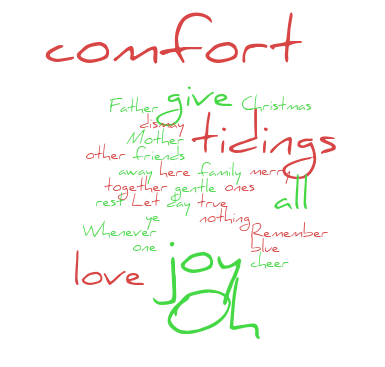 comfort
Father give Christmas
dismay tidings
Mother
other friends
away here family merry
together gentle ones
rest Let day true all
ye nothing
Whenever Remember
one blue
love joy cheer
Oh